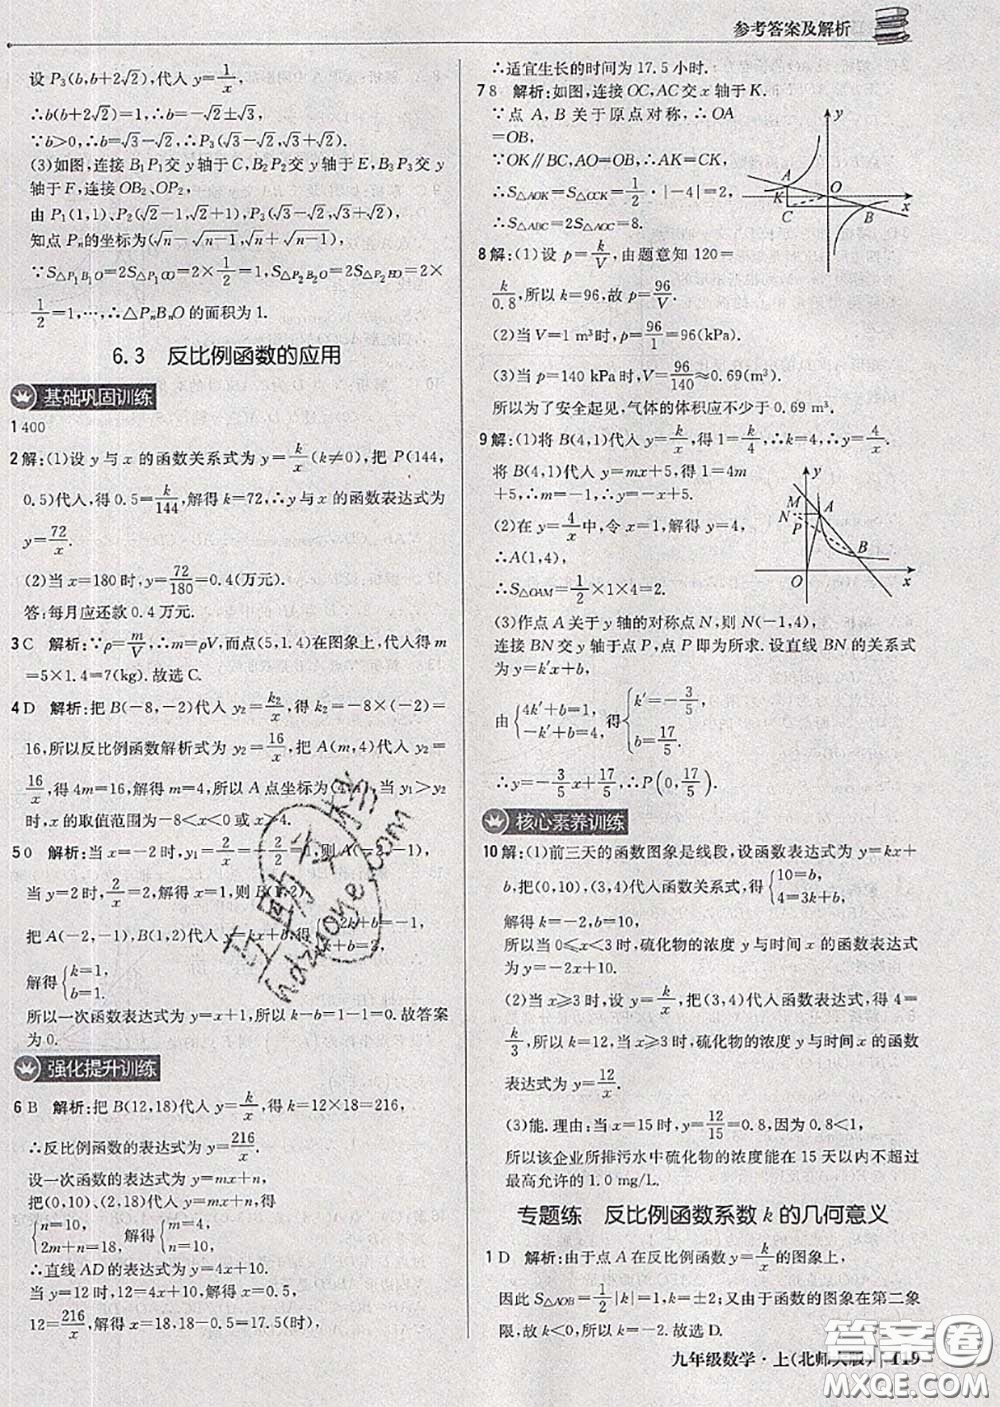 参考答案及解析
设 P₃(b,b+2√2),代入 y=1/x,
∴b(b+2√2)=1,∴b=-√2±√3,
∵b>0,∴b=√3-√2,∴P₃(√3-√2,√3+√2).
(3)如图,连接 B₁P₁交 y轴于 C,B₂P₂交 y轴于 E,B₃P₃交 y
轴于 F,连接 OB₂,OP₂,
由 P₁(1,1)、P₂(√2-1,√2+1),P₃(√3-√2,√3+√2),
知点 Pₙ的坐标为(√n-√(n-1),√n+√(n-1)),
∵S△P₁B₁O=2S△P₁CO=2×1/2=1,S△P₂B₂O=2S△P₂EO=2×
1/2=1,…,∴△PₙBₙO 的面积为 1.
6.3 反比例函数的应用
基础巩固训练
1 400
2 解:(1)设 y 与 x 的函数关系式为 y=k/x(k≠0),把 P(144,
0.5)代入,得 0.5=k/144,解得 k=72,∴y 与 x 的函数表达式为
y=72/x.
(2)当 x=180 时,y=72/180=0.4(万元).
答:每月应还款 0.4 万元.
3 C 解析:∵ρ=m/V,∴m=ρV,而点(5,1.4)在图象上,代入得 m
=5×1.4=7(kg).故选 C.
4 D 解析:把 B(-8,-2)代入 y₂=k₂/x,得 k₂=-8×(-2)=
16,所以反比例函数解析式为 y₂=16/x,把 A(m,4)代入 y₂=
16/x,得 4m=16,解得 m=4,所以 A 点坐标为(4,4),当 y₁>y₂
时,x 的取值范围为-8<x<0 或 x>4.
5 0 解析:当 x=-2 时,y₁=2/x=-1,则 A(-2,-1),
当 y=2 时,2/x=2,解得 x=1,则 B(1,2).
把 A(-2,-1),B(1,2)代入 y₂=kx+b,得{-2k+b=-1,
解得{k=1,
b=1.
所以一次函数表达式为 y=x+1,所以 k-b=1-1=0.故答案
为 0.
强化提升训练
6 B 解析:把 B(12,18)代入 y=k/x,得 k=12×18=216,
∴反比例函数的表达式为 y=216/x.
设一次函数的表达式为 y=mx+n,
把(0,10)、(2,18)代入 y=mx+n,得
{n=10, 解得{m=4,
2m+n=18, n=10,
∴直线 AD 的表达式为 y=4x+10,
当 y=12 时,12=4x+10,解得 x=0.5,
12=216/x,解得 x=18.18-0.5=17.5(时),
∴适宜生长的时间为 17.5 小时.
7 8 解析:如图,连接 OC,AC 交 x 轴于 K.
∵点 A,B 关于原点对称,∴OA
=OB,
∵OK∥BC,AO=OB,∴AK=CK,
∴S△AOK=S△CCK=1/2·|-4|=2,
∴S△ABC=2S△AOC=8.
A
K
C
O
B
x
8 解:(1)设 p=k/V,由题意知 120=
k/0.8,所以 k=96,故 p=96/V.
(2)当 V=1 m³时,p=96/1=96(kPa).
(3)当 p=140 kPa 时,V=96/140≈0.69(m³).
所以为了安全起见,气体的体积应不少于 0.69 m³.
9 解:(1)将 B(4,1)代入 y=k/x,得 1=k/4,∴k=4,∴y=4/x.
将 B(4,1)代入 y=mx+5,得 1=4m
+5,∴m=-1,∴y=-x+5.
(2)在 y=4/x 中,令 x=1,解得 y=4,
∴A(1,4),
∴S△OAM=1/2×1×4=2.
y
M
N
P
A
B
O
x
(3)作点 A 关于 y 轴的对称点 N,则 N(-1,4),
连接 BN 交 y 轴于点 P,点 P 即为所求.设直线 BN 的关系式
为 y=k′x+b,
由{4k′+b=1, 得{k′=-3/5,
-k′+b=4, b=17/5.
∴y=-3/5x+17/5,∴P(0,17/5)
核心素养训练
10 解:(1)前三天的函数图象是线段,设函数表达式为 y=kx+
b,把(0,10),(3,4)代入函数关系式,得{10=b,
4=3k+b,
解得 k=-2,b=10,
所以当 0≤x<3 时,硫化物的浓度 y 与时间 x 的函数表达式
为 y=-2x+10;
(2)当 x≥3 时,设 y=k/x,把(3,4)代入函数表达式,得 4=
k/3,所以 k=12,当 x≥3 时,硫化物的浓度 y 与时间 x 的函数
表达式为 y=12/x;
(3)能.理由:当 x=15 时,y=12/15=0.8,因为 0.8<1,
所以该企业所排污水中硫化物的浓度能在 15 天以内不超过
最高允许的 1.0 mg/L.
专题练 反比例函数系数 k 的几何意义
1 D 解析:由于点 A 在反比例函数 y=k/x 的图象上,
因此 S△AOB=1/2|k|=1,k=±2;又由于函数的图象在第二象
限,故 k<0,所以 k=-2.故选 D.
九年级数学·上(北师大版) 119
答案圈
MXQE.COM
hdzuoye.com